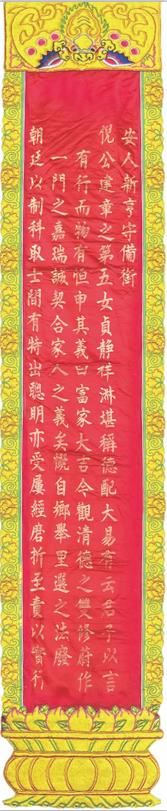 安人新亨守備銜
倪公建章之第五女貞靜祥淋堪稱德配大易有云君子以言
有行而物有恒申其義曰富家大吉今觀清德之雙修蔚作
一門之嘉瑞誠契合家人之義矣慨自鄉舉里選之法廢
朝廷以制科取士間有特出聰明亦受屢經磨折至責以實行